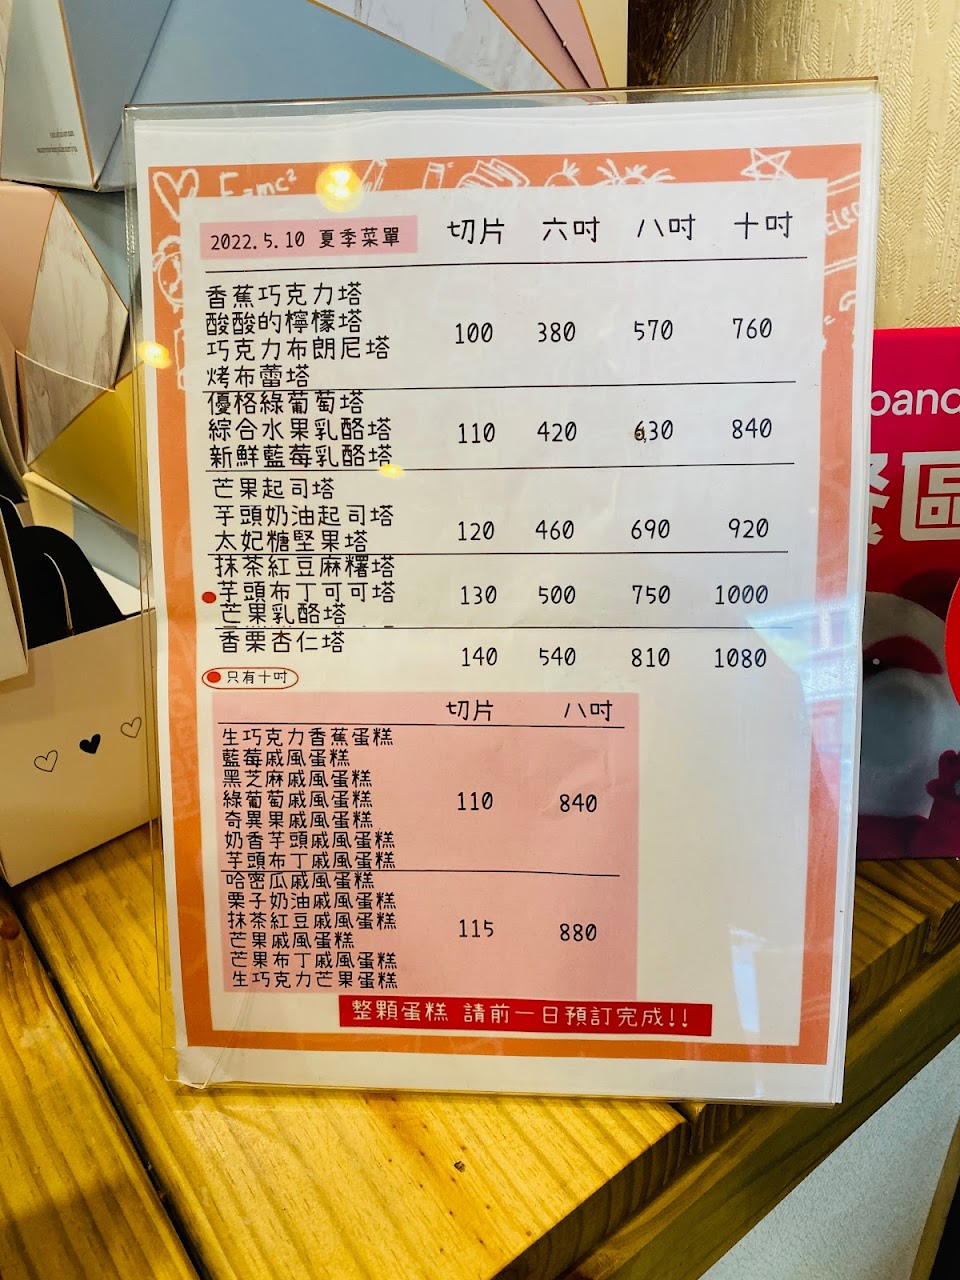 E=mc²
2022.5.10 夏季菜單 切片 六吋 八吋 十吋
香蕉巧克力塔
酸酸的檸檬塔
巧克力布朗尼塔
烤布蕾塔
100 380 570 760
優格綠葡萄塔
綜合水果乳酪塔
新鮮藍莓乳酪塔
110 420 630 840
芒果起司塔
芋頭奶油起司塔
太妃糖堅果塔
120 460 690 920
抹茶紅豆麻糬塔
芋頭布丁可可塔
芒果乳酪塔
130 500 750 1000
香栗杏仁塔
140 540 810 1080
只有十吋
切片 八吋
生巧克力香蕉蛋糕
藍莓戚風蛋糕
黑芝麻戚風蛋糕
綠葡萄戚風蛋糕
奇異果戚風蛋糕
奶香芋頭戚風蛋糕
芋頭布丁戚風蛋糕
110 840
哈密瓜戚風蛋糕
栗子奶油戚風蛋糕
抹茶紅豆戚風蛋糕
芒果戚風蛋糕
芒果布丁戚風蛋糕
生巧克力芒果蛋糕
115 880
整顆蛋糕 請前一日預訂完成!!
區